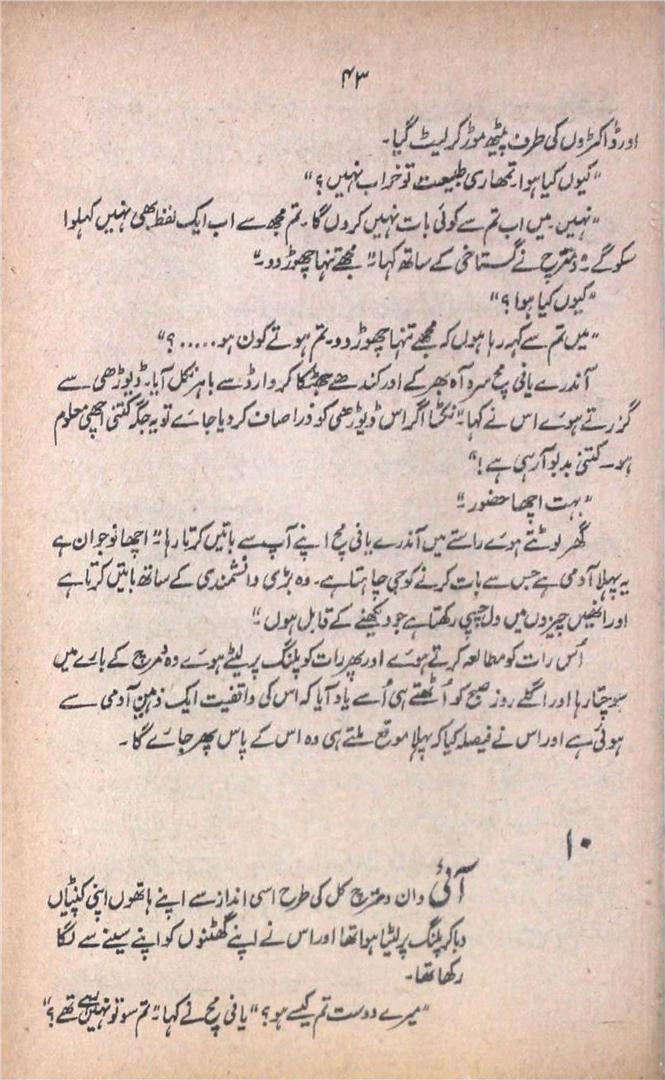 ۴۳
اور ڈاکٹروں کی طرف پیٹھ موڑ کر لیٹ گیا۔
"کیوں کیا ہوا۔ تمھاری طبیعت تو خراب نہیں؟"
"نہیں۔ میں اب تم سے کوئی بات نہیں کروں گا۔ تم مجھ سے اب ایک لفظ بھی نہیں کہلوا
سکو گے۔" دمترچ نے گستاخی کے ساتھ کہا۔ "مجھے تنہا چھوڑ دو۔"
"کیوں کیا ہوا؟"
"میں تم سے کہہ رہا ہوں کہ مجھے تنہا چھوڑ دو۔ تم ہوتے کون ہو.....؟"
آندرے یافی مچ سرد آہ بھر کے اور کندھے جھٹکا کر وارڈ سے باہر نکل آیا۔ ڈیوڑھی سے
گزرتے ہوئے اس نے کہا۔ "نکتا اگر اس ڈیوڑھی کو ذرا صاف کر دیا جائے تو یہ جگہ کتنی اچھی معلوم
ہو۔ کتنی بدبو آرہی ہے!"
"بہت اچھا حضور۔"
گھر لوٹتے ہوئے راستے میں آندرے یافی مچ اپنے آپ سے باتیں کرتا رہا۔ "اچھا نوجوان ہے
یہ پہلا آدمی ہے جس سے بات کرنے کو جی چاہتا ہے۔ وہ بڑی دانشمندی کے ساتھ باتیں کرتا ہے
اور انھیں چیزوں میں دلچسپی رکھتا ہے جو دیکھنے کے قابل ہوں۔"
اُس رات کو مطالعہ کرتے ہوئے اور پھر رات کو پلنگ پر لیٹے ہوئے وہ دمترچ کے بارے میں
سوچتا رہا اور اگلے روز صبح کو اُٹھتے ہی اُسے یاد آیا کہ اس کی واقفیت ایک ذہین آدمی سے
ہوئی ہے اور اس نے فیصلہ کیا کہ پہلا موقع ملتے ہی وہ اس کے پاس پھر جائے گا۔
۱۰
آئی وان دمترچ کل کی طرح اسی انداز سے اپنے ہاتھوں اپنی کنپٹیاں
دبا کر پلنگ پر لیٹا ہوا تھا اور اس نے اپنے گھٹنوں کو اپنے سینے سے لگا
رکھا تھا۔
"میرے دوست تم کیسے ہو؟" یافی مچ نے کہا۔ "تم سو تو نہیں رہے تھے؟"